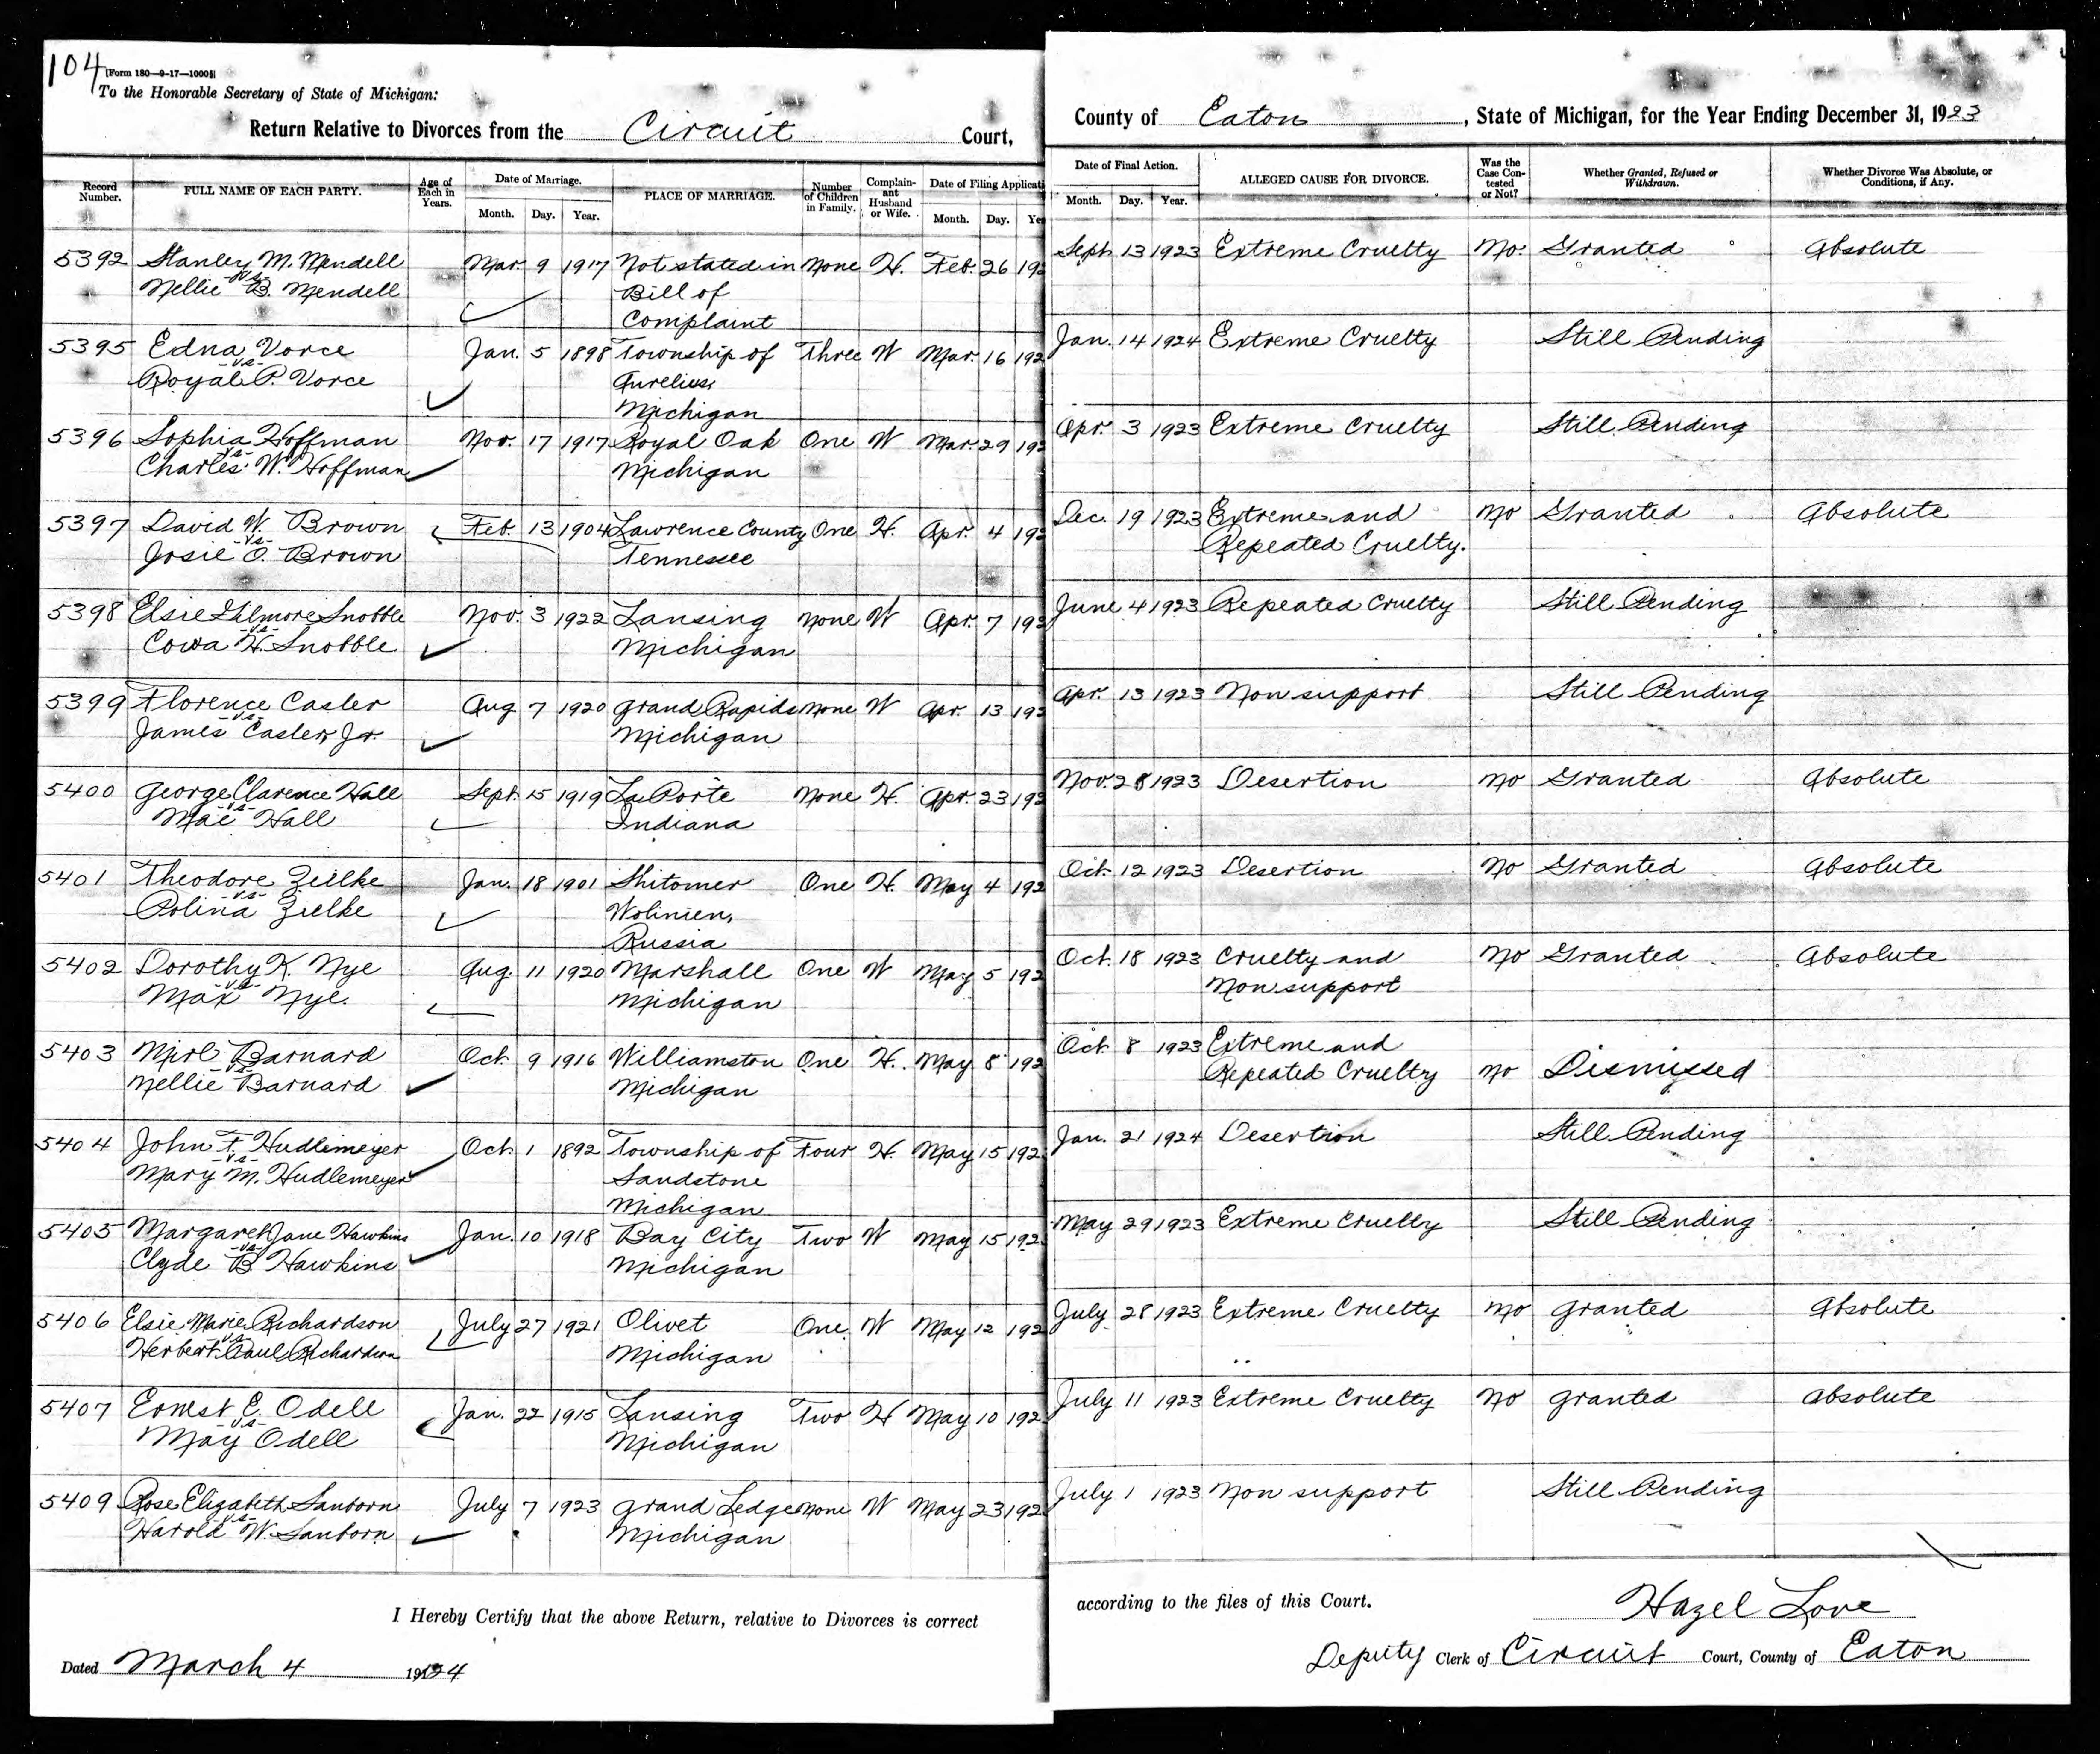 104
[Form 180—9-17—1000]
To the Honorable Secretary of State of Michigan:
Return Relative to Divorces from the Circuit Court,
County of Eaton, State of Michigan, for the Year Ending December 31, 1923
Record Number. FULL NAME OF EACH PARTY. Age of Each in Years. Date of Marriage. Month. Day. Year. PLACE OF MARRIAGE. Number of Children in Family. Complainant Husband or Wife. Date of Filing Applicati Month. Day. Ye
Date of Final Action. Month. Day. Year. ALLEGED CAUSE FOR DIVORCE. Was the Case Contested or Not? Whether Granted, Refused or Withdrawn. Whether Divorce Was Absolute, or Conditions, if Any.
5392 Stanley M. Mendell Mar. 9 1917 Not stated in None H. Feb. 26 192 Sept. 13 1923 Extreme Cruelty No. Granted Absolute
-vs-
Nellie B. Mendell Bill of
Complaint
5395 Edna Vorce Jan. 5 1898 Township of Three W Mar. 16 192 Jan. 14 1924 Extreme Cruelty Still Pending
-vs-
Royal P. Vorce Aurelius,
Michigan
5396 Sophia Hoffman Nov. 17 1917 Royal Oak One W Mar. 29 192 Apr. 3 1923 Extreme Cruelty Still Pending
-vs-
Charles W. Hoffman Michigan
5397 David W. Brown Feb. 13 1904 Lawrence County One H. Apr. 4 192 Dec. 19 1923 Extreme and No Granted Absolute
-vs-
Josie O. Brown Tennessee Repeated Cruelty.
5398 Elsie Gilmore Snobble Nov. 3 1922 Lansing None W Apr. 7 192 June 4 1923 Repeated Cruelty Still Pending
-vs-
H. Snobble Michigan
5399 Florence Casler Aug 7 1920 Grand Rapids None W Apr. 13 192 Apr. 13 1923 Non support Still Pending
-vs-
James Casler, Jr. Michigan
5400 George Clarence Hall Sept. 15 1919 La Porte None H. Apr. 23 192 Nov. 28 1923 Desertion No Granted Absolute
-vs-
Mae Hall Indiana
5401 Theodore Zielke Jan. 18 1901 Shitomer One H. May 4 192 Oct. 12 1923 Desertion No Granted Absolute
-vs-
Polina Zielke Wolinien,
Russia
5402 Dorothy K. Nye Aug. 11 1920 Marshall One W May 5 192 Oct. 18 1923 Cruelty and No Granted Absolute
-vs-
Max Nye. Michigan Non support
5403 Mirl Barnard Oct. 9 1916 Williamston One H. May 8 192 Oct. 8 1923 Extreme and
-vs-
Nellie Barnard Michigan Repeated Cruelty No Dismissed
5404 John F. Hudlemeyer Oct. 1 1892 Township of Four H. May 15 192 Jan. 21 1924 Desertion Still Pending
-vs-
Mary M. Hudlemeyer Sandstone
Michigan
5405 Margaret Jane Hawkins Jan. 10 1918 Bay City Two W May 15 192 May 29 1923 Extreme Cruelty Still Pending
-vs-
Clyde B Hawkins Michigan
5406 Elsie Marie Richardson July 27 1921 Olivet One W May 12 192 July 28 1923 Extreme Cruelty No Granted Absolute
-vs-
Herbert Paul Richardson Michigan
5407 Ernest E. Odell Jan. 22 1915 Lansing Two H May 10 192 July 11 1923 Extreme Cruelty No Granted Absolute
-vs-
May Odell Michigan
5409 Rose Elizabeth Sanborn July 7 1923 Grand Ledge None W May 23 192 July 1 1923 Non support Still Pending
-vs-
Harold W. Sanborn Michigan
I Hereby Certify that the above Return, relative to Divorces is correct according to the files of this Court.
Hazel Love
Dated March 4 1924
Deputy Clerk of Circuit Court, County of Eaton